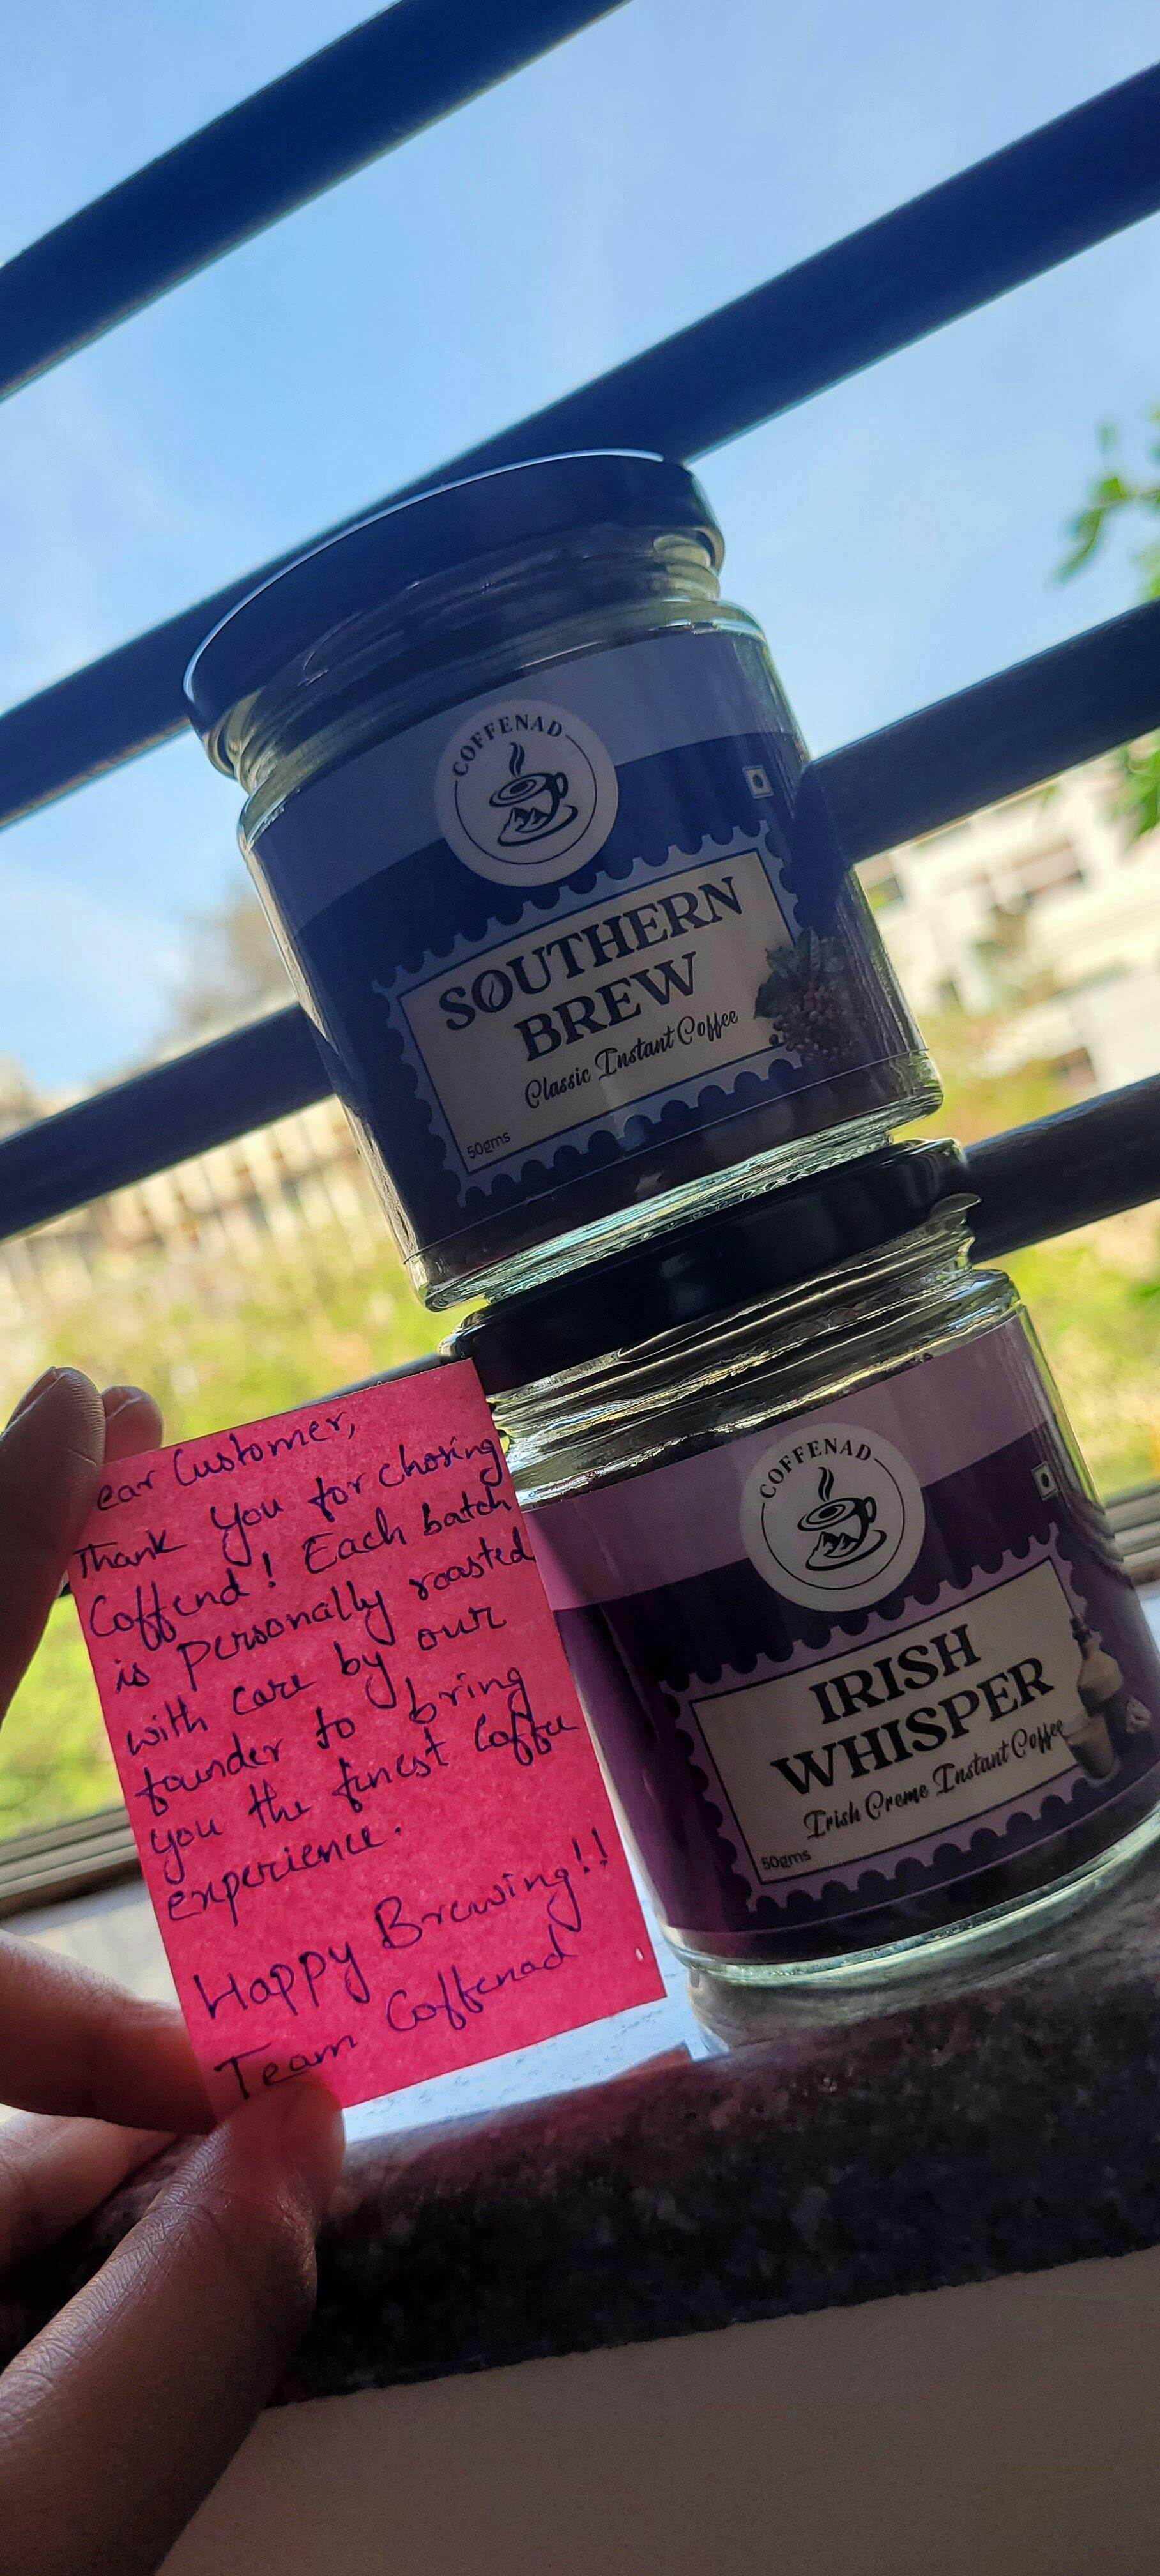 COFFENAD
SOUTHERN
BREW
Classic Instant Coffee
50gms
COFFENAD
IRISH
WHISPER
Irish Creme Instant Coffee
50gms
ear Customer,
Thank You for chosing
Coffend! Each batch
is personally roasted
with care by our
founder to bring
you the finest Coffee
experience.
Happy Brewing!!
Team Coffenad